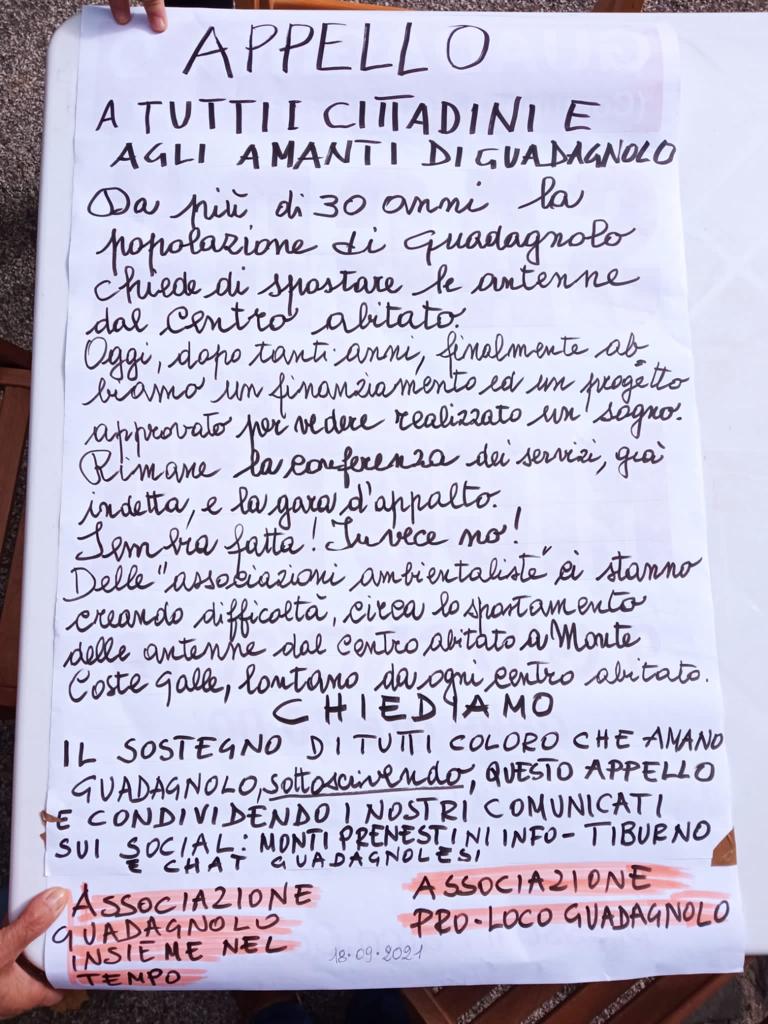 APPELLO
A TUTTI I CITTADINI E
AGLI AMANTI DI GUADAGNOLO
Da più di 30 anni la
popolazione di Guadagnolo
chiede di spostare le antenne
dal Centro abitato.
Oggi, dopo tanti anni, finalmente ab
biamo un finanziamento ed un progetto
approvato per vedere realizzato un sogno.
Rimane la conferenza dei servizi, già
indetta, e la gara d'appalto.
Sembra fatta! Invece no!
Delle "associazioni ambientaliste" ci stanno
creando difficoltà, circa lo spostamento
delle antenne dal Centro abitato a Monte
Coste Galle, lontano da ogni centro abitato.
CHIEDIAMO
IL SOSTEGNO DI TUTTI COLORO CHE AMANO
GUADAGNOLO, sottoscivendo, QUESTO APPELLO
E CONDIVIDENDO I NOSTRI COMUNICATI
SUI SOCIAL: MONTI PRENESTINI INFO-TIBURNO
E CHAT GUADAGNOLESI
ASSOCIAZIONE
GUADAGNOLO
INSIEME NEL
TEMPO
ASSOCIAZIONE
PRO-LOCO GUADAGNOLO
18.09.2021